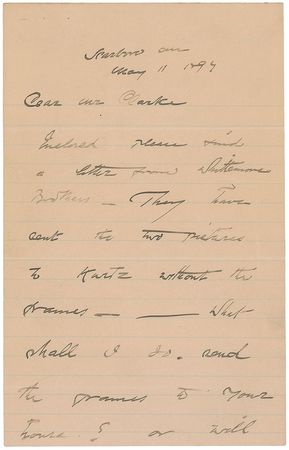 Scarboro Me
May 11 1897
Dear Mr Clarke
Enclosed please find
a letter from Whittemore
Brothers — They have
sent the two pictures
to Kurtz without the
frames — — What
shall I do. send
the frames to your
house ? or will